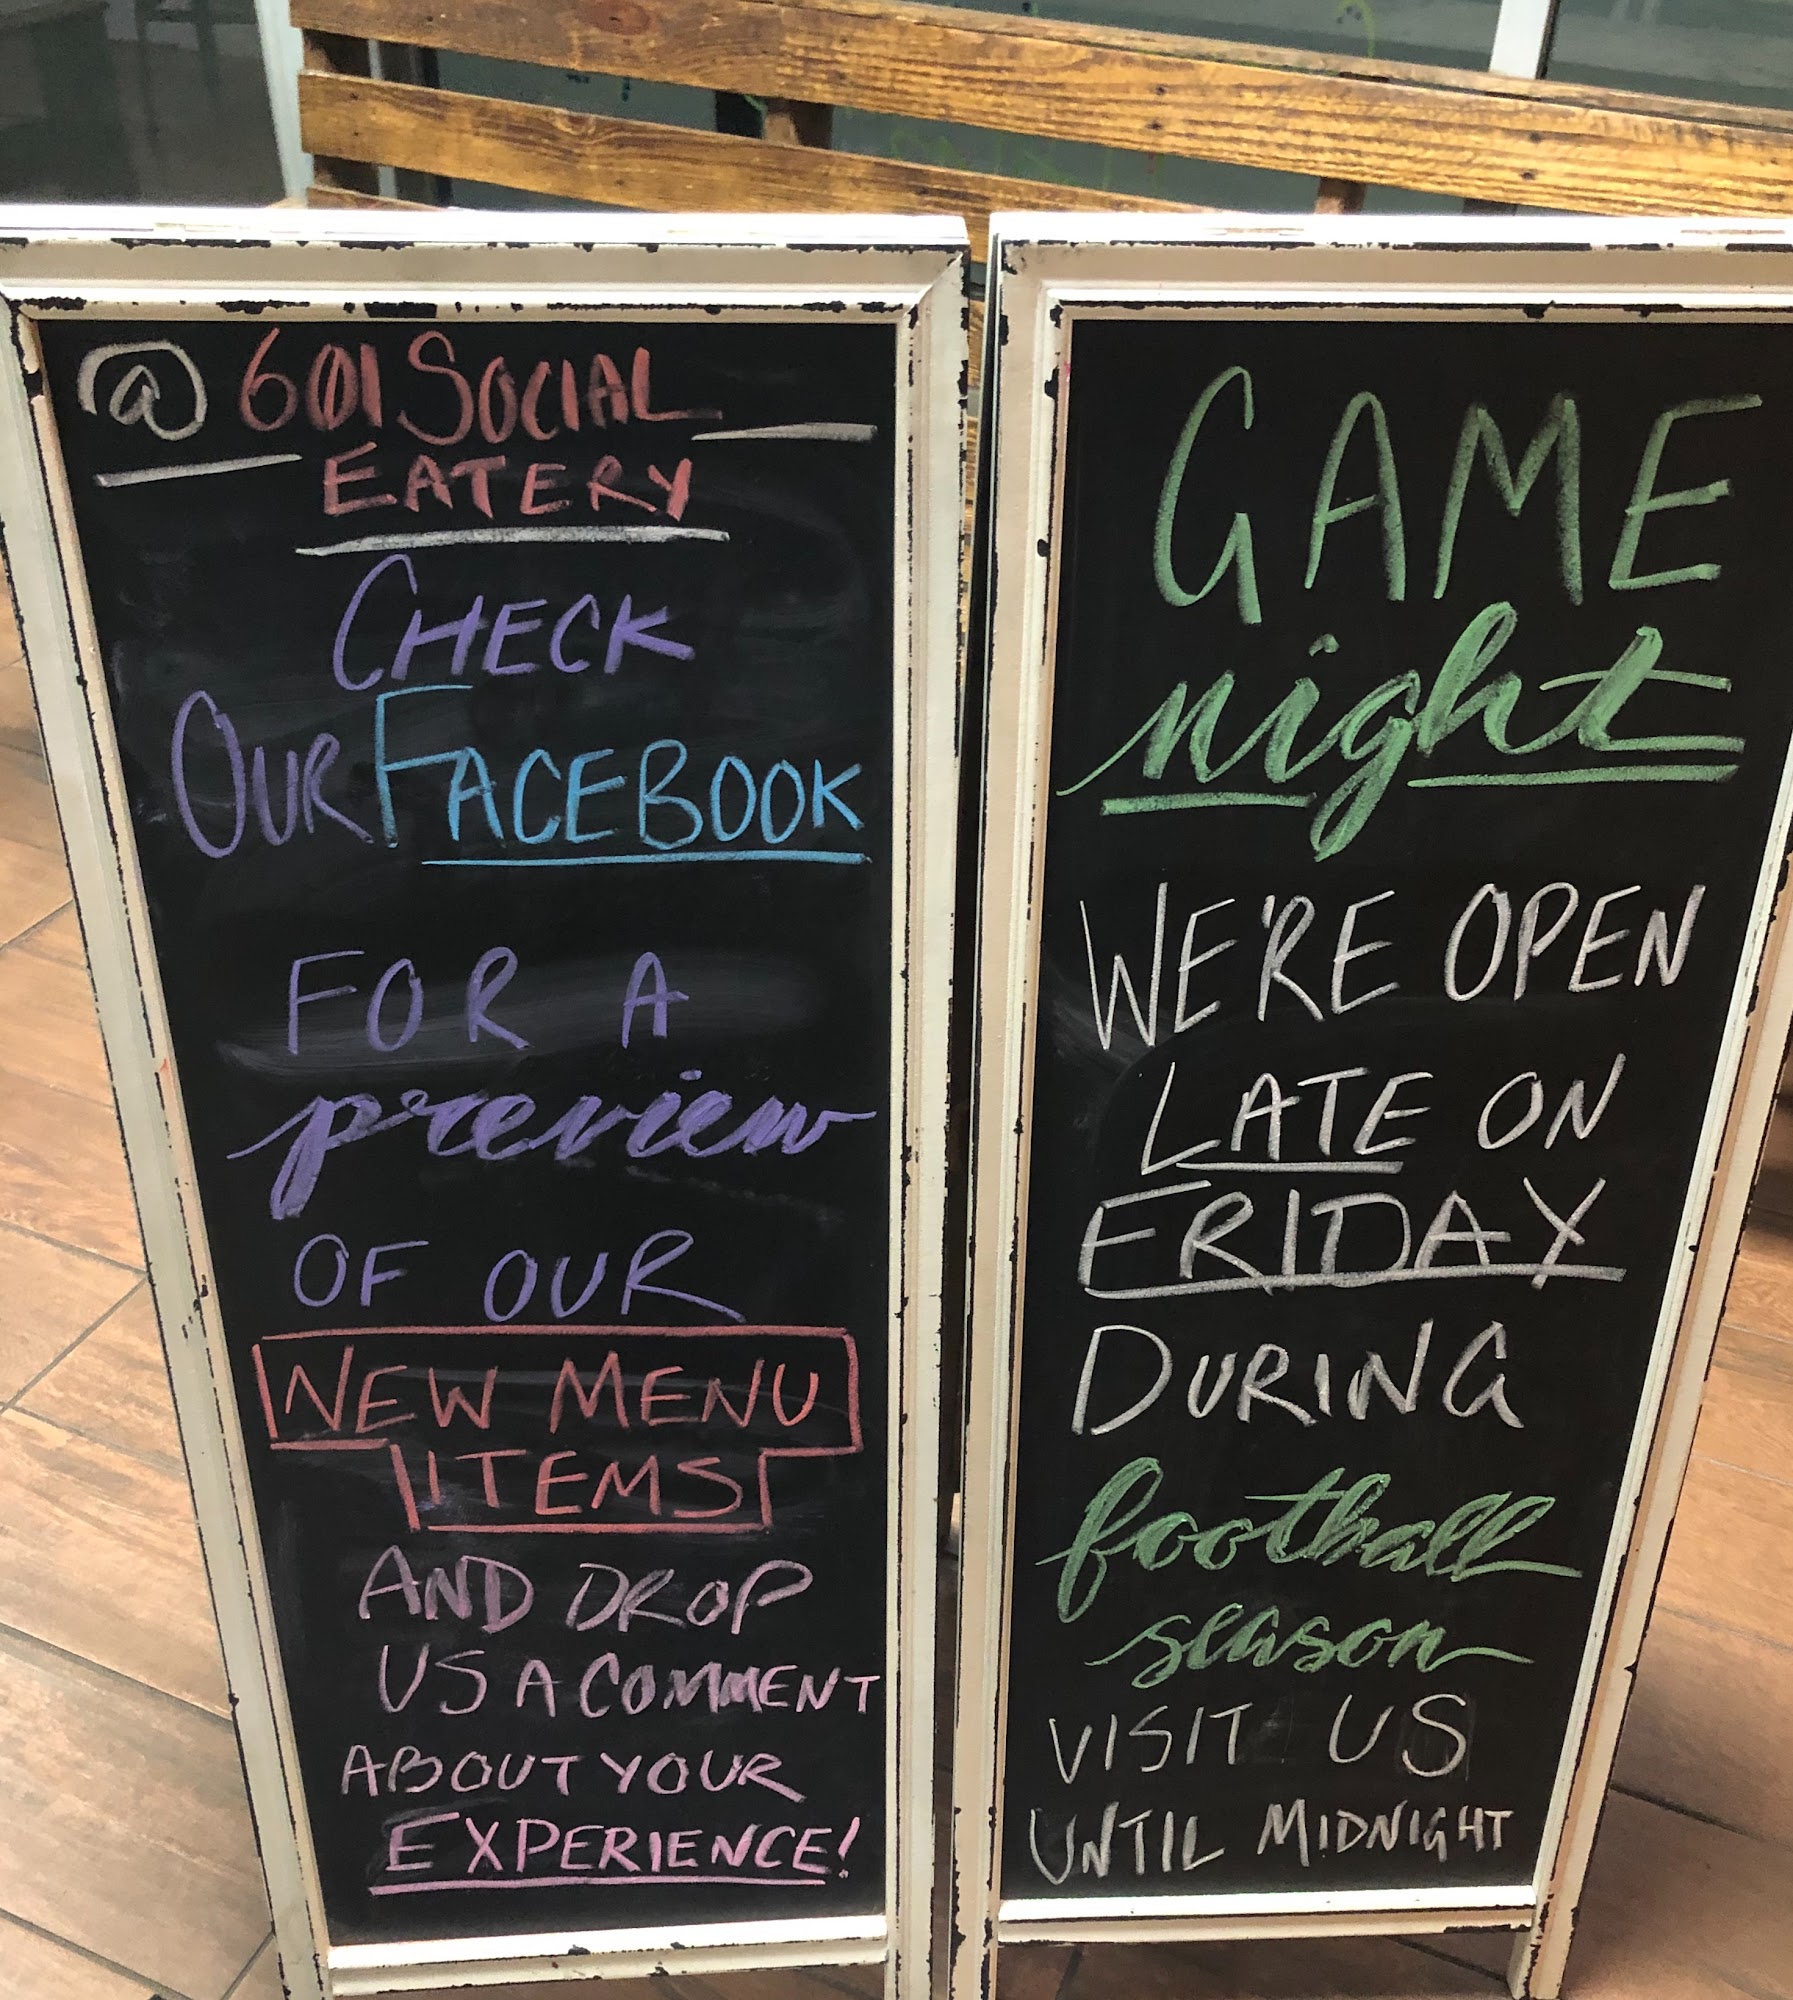 @601 SOCIAL
EATERY
CHECK
OUR FACEBOOK
FOR A
preview
OF OUR
NEW MENU
ITEMS
AND DROP
US A COMMENT
ABOUT YOUR
EXPERIENCE!
GAME
night
WE'RE OPEN
LATE ON
FRIDAY
DURING
football
season
VISIT US
UNTIL MIDNIGHT